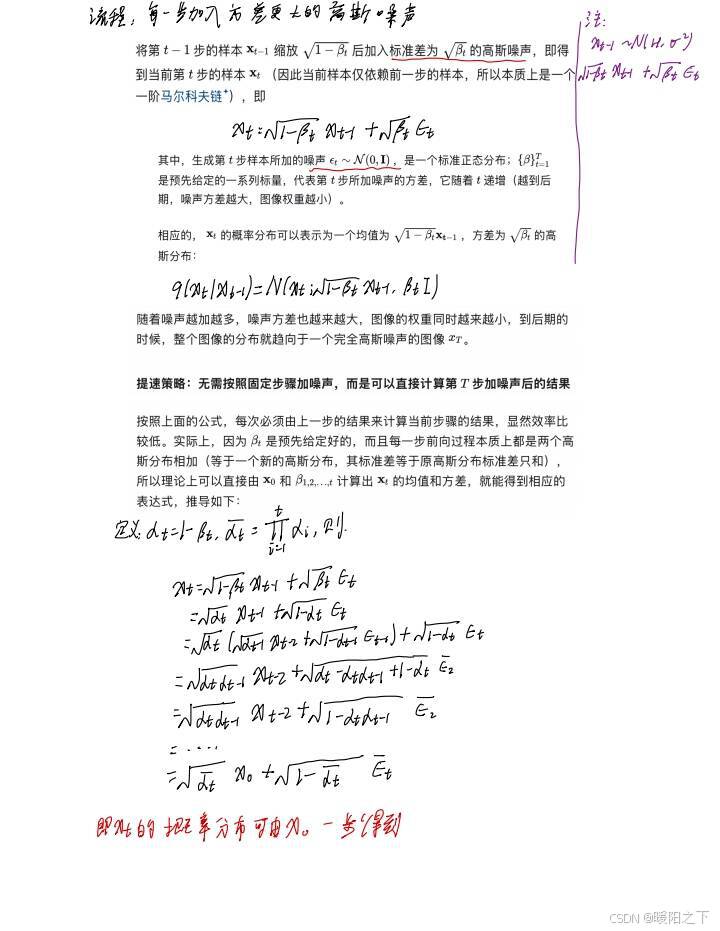 流程,每一步加入方差更大的高斯噪声
将第 t − 1 步的样本 x_{t−1} 缩放 √(1−β_t) 后加入标准差为 √β_t 的高斯噪声，即得
到当前第 t 步的样本 x_t （因此当前样本仅依赖前一步的样本，所以本质上是一个
一阶马尔科夫链），即
x_t = √(1−β_t) x_{t−1} + √β_t ε_t
注:
x_{t−1} ~ N(μ, σ²)
√(1−β_t) x_{t−1} + √β_t ε_t
其中，生成第 t 步样本所加的噪声 ϵ_t ∼ N(0, I)，是一个标准正态分布；{β}_{t=1}^T
是预先给定的一系列标量，代表第 t 步所加噪声的方差，它随着 t 递增（越到后
期，噪声方差越大，图像权重越小）。
相应的， x_t 的概率分布可以表示为一个均值为 √(1−β_t)x_{t−1} ，方差为 √β_t 的高
斯分布：
q(x_t|x_{t−1}) = N(x_t; √(1−β_t) x_{t−1}, β_t I)
随着噪声越加越多，噪声方差也越来越大，图像的权重同时越来越小，到后期的
时候，整个图像的分布就趋向于一个完全高斯噪声的图像 x_T 。
提速策略：无需按照固定步骤加噪声，而是可以直接计算第 T 步加噪声后的结果
按照上面的公式，每次必须由上一步的结果来计算当前步骤的结果，显然效率比
较低。实际上，因为 β_t 是预先给定好的，而且每一步前向过程本质上都是两个高
斯分布相加（等于一个新的高斯分布，其标准差等于原高斯分布标准差只和），
所以理论上可以直接由 x_0 和 β_{1,2,…,t} 计算出 x_t 的均值和方差，就能得到相应的
表达式，推导如下：
定义: α_t = 1−β_t, ᾱ_t = ∏_{i=1}^t α_i, 则.
x_t = √(1−β_t) x_{t−1} + √β_t ε_t
= √α_t x_{t−1} + √(1−α_t) ε_t
= √α_t (√α_{t−1} x_{t−2} + √(1−α_{t−1}) ε_{t−1}) + √(1−α_t) ε_t
= √(α_t α_{t−1}) x_{t−2} + √(α_t − α_t α_{t−1} + 1 − α_t) ε̄_2
= √(α_t α_{t−1}) x_{t−2} + √(1 − α_t α_{t−1}) ε̄_2
= ·····
= √ᾱ_t x_0 + √(1−ᾱ_t) ε̄_t
即x_t的概率分布可由x_0一步得到
CSDN @暖阳之下